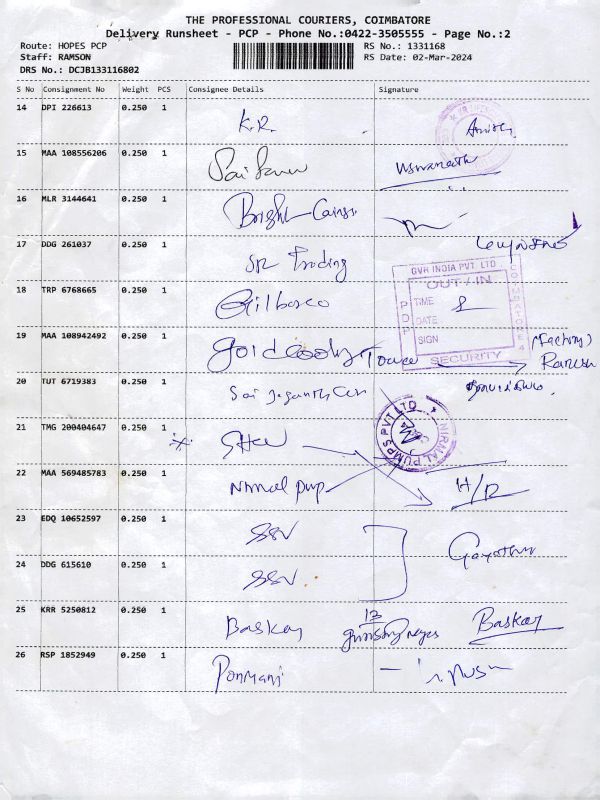 THE PROFESSIONAL COURIERS, COIMBATORE
Delivery Runsheet - PCP - Phone No.:0422-3505555 - Page No.:2
Route: HOPES PCP
Staff: RAMSON
DRS No.: DCJB133116802
RS No.: 1331168
RS Date: 02-Mar-2024
S No Consignment No Weight PCS Consignee Details Signature
14 DPI 226613 0.250 1 K.R.
15 MAA 108556206 0.250 1 Viswanath
16 MLR 3144641 0.250 1 Bright
17 DDG 261037 0.250 1 SR Trading
GVR INDIA PVT. LTD.
OUT / IN
TIME
DATE
SIGN
SECURITY
PDP
COIMBATORE
18 TRP 6768665 0.250 1 Gilbarco
19 MAA 108942492 0.250 1 (Factory) Ramesh
20 TUT 6719383 0.250 1 Sai
NIRMAL PUMPS PVT LTD
21 TMG 200404647 0.250 1
22 MAA 569485783 0.250 1 Nirmal pump H/D
23 EDQ 10652597 0.250 1 SSV
24 DDG 615610 0.250 1 SSV
25 KRR 5250812 0.250 1 Baskar 13 Baskar
26 RSP 1852949 0.250 1 Ponmani